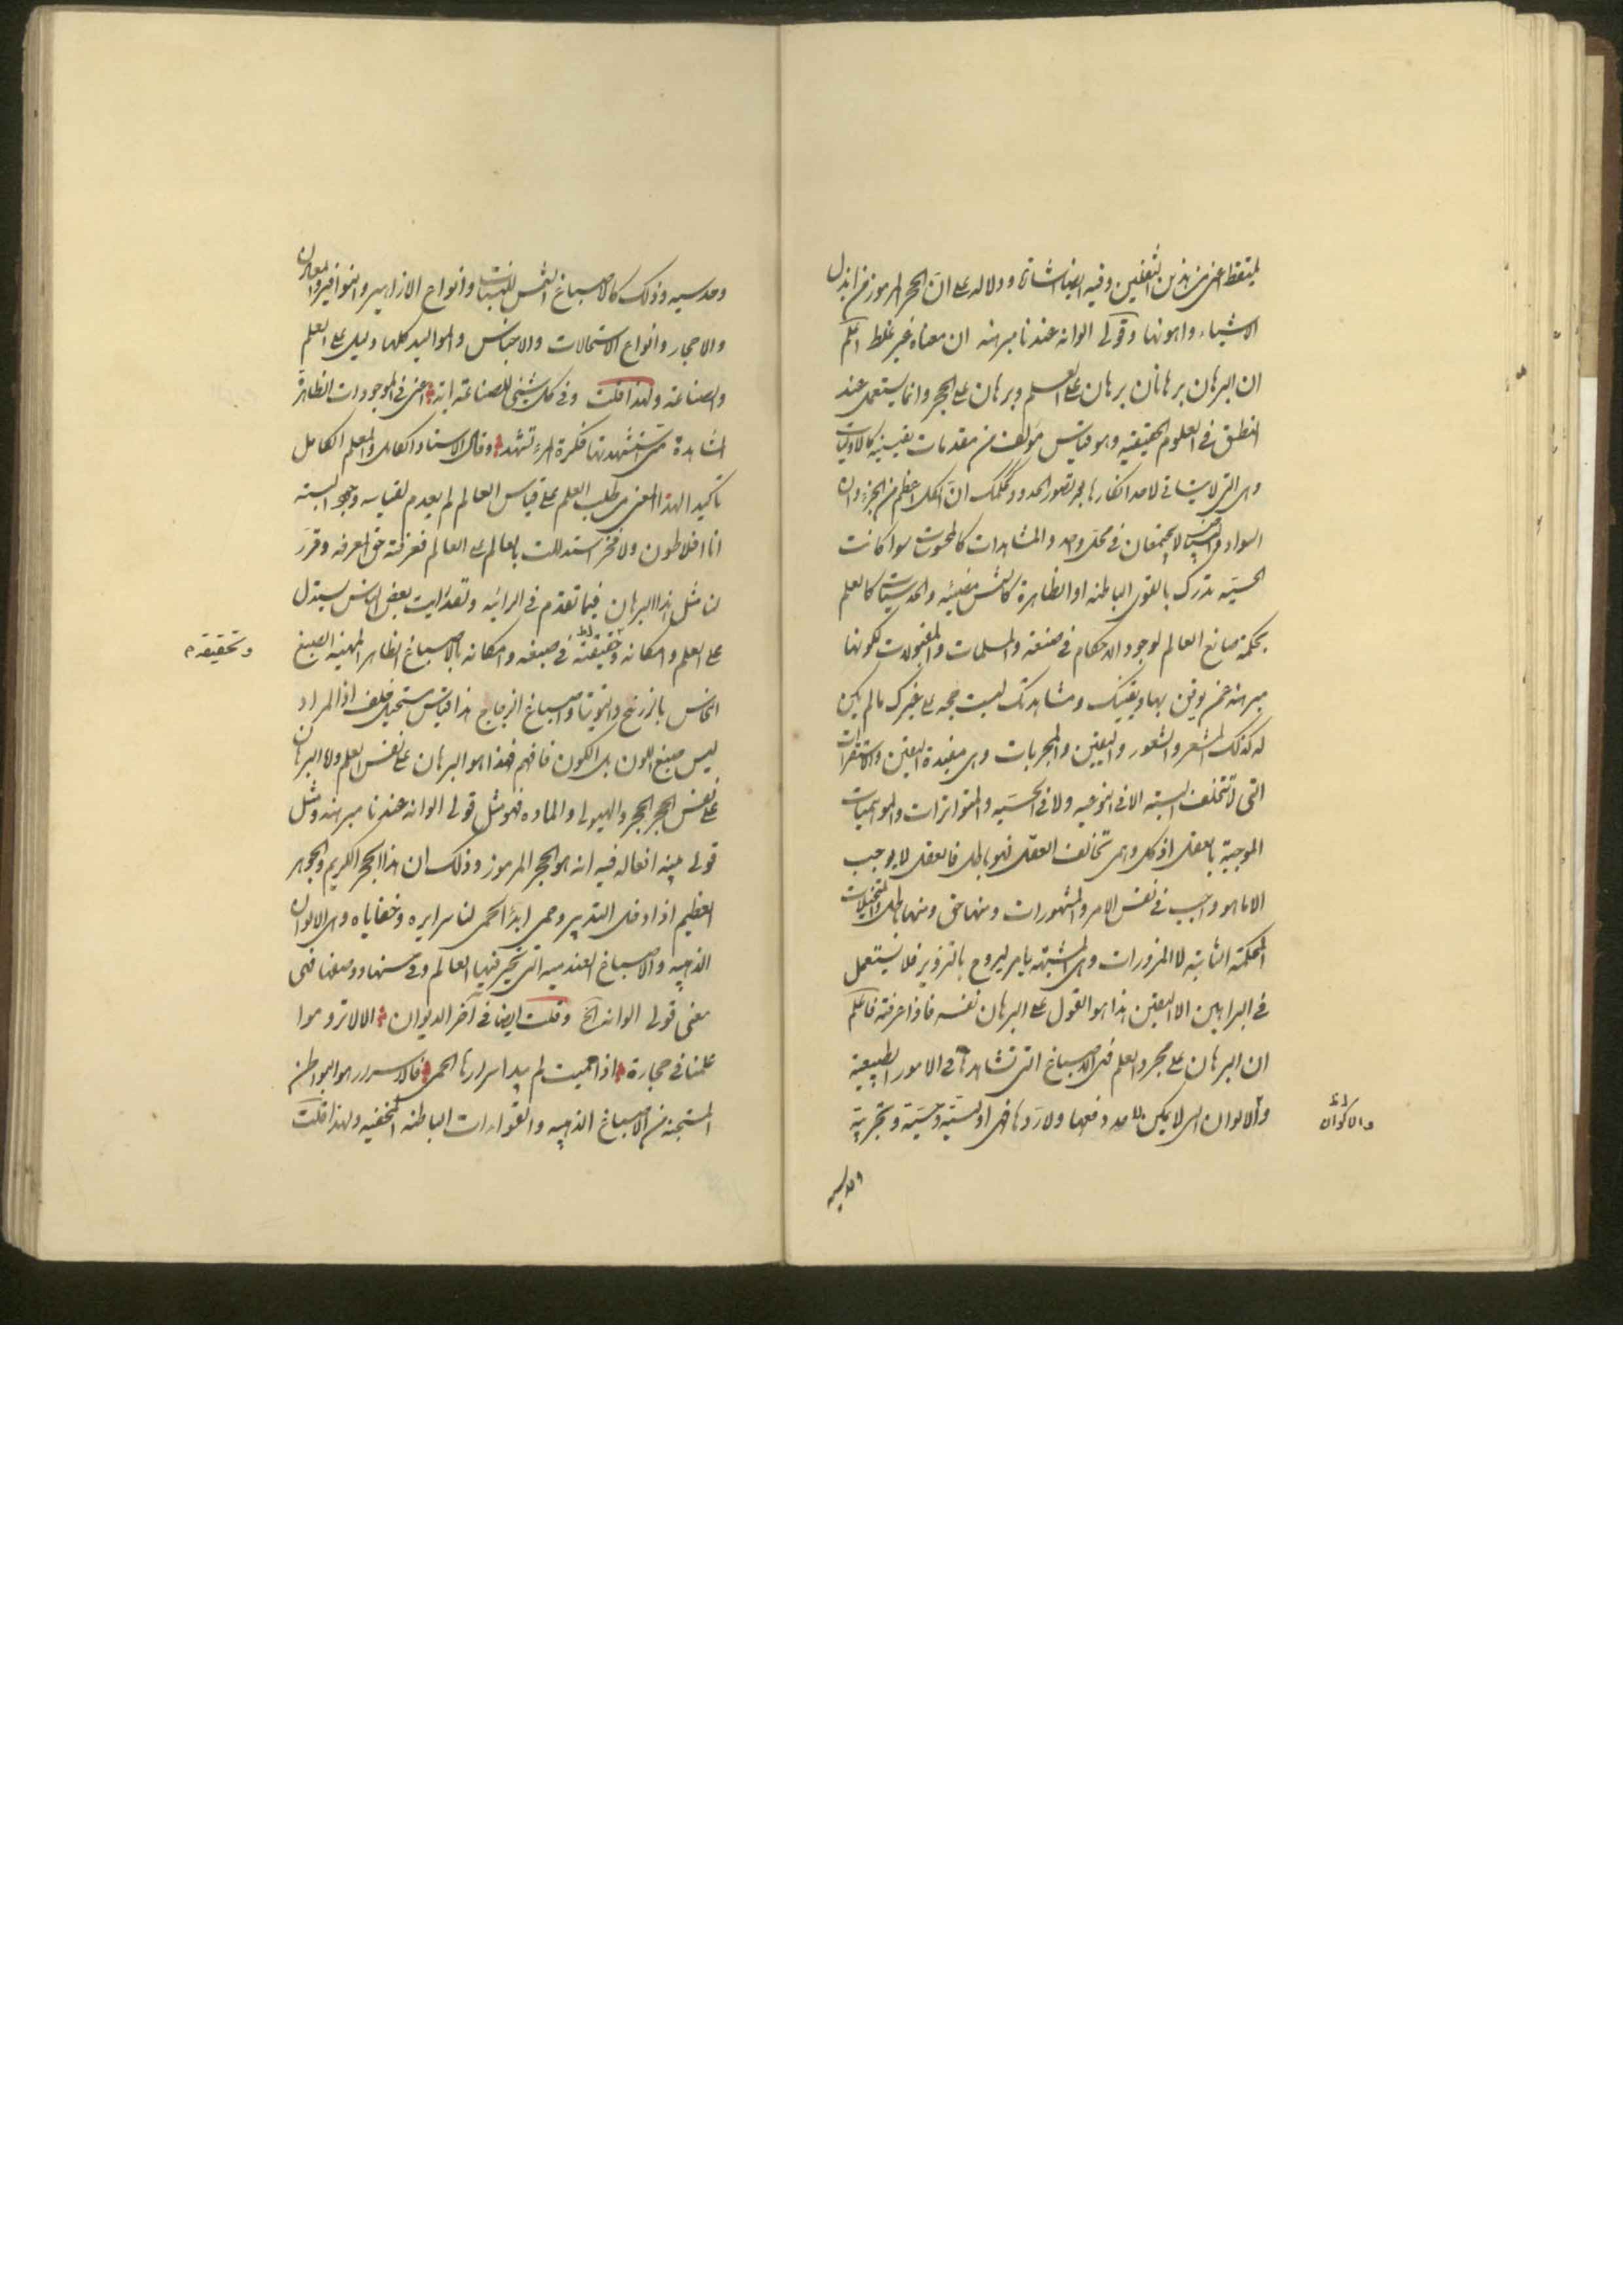 لمتقظ اعنى من هذين الثقلين وفيه ايضا اشارة ودلاله على ان الحجر المرموز من ابذل
الاشياء واهونها وقولى الوانه عندنا مبرهنه ان معناه غير غلط اعلم
ان البرهان برهانان برهان على العلم وبرهان على الحجر وانما يستعمل عند
المنطق فى العلوم الحقيقيه وهو قياس مؤلف من مقدمات يقينيه كالاوليات
وهى التى لا يتاتى لاحد انكارها بمجرد تصور الحدود كحكمك ان الكل اعظم من الجزء وان
السواد والبياض لا يجتمعان فى محل واحد والمشاهدات كالمحسوسات سوا كانت
الحسيه تدرك بالقوى الباطنه او الظاهرة كالشمس مضيئه والحدسيات كالعلم
بحكمة صانع العالم لوجود الاحكام فى صنعته والمسلمات والمقبولات لكونها
مبرهنه عمن يوثق بها ويقينك ومشاهدتك ليست بحجه على غيرك ما لم يكن
له كذلك المشعر والشعور واليقين والمجربات وهى مفيدة اليقين والاستقرات
التى لا تتخلف البته الا فى النوعيه ولا فى الحسيه والمتواترات
الموجبة بالعقل اذ كل وهمى تخالف العقل فهو باطل فالعقل لا يوجب
الا ما هو واجب فى نفس الامر والمشهورات ومنها حق ومنها باطل والمتخيلات
المحكمة الثابته لا المزورات وهى المشبهه بامر ليروج بالتزوير فلا يستعمل
فى البراهين الا اليقين هذا هو القول على البرهان نفسه فاذا عرفته فاعلم
ان البرهان على مجرد العلم فمن الاصباغ التى تشاهد فى الامور الطبيعية
والالوان التى لا يمكن لاحد دفعها ولا ردها فهى اوليته وحسيته وتجربية
والاكوان
وحدسيه
وحدسيه وذلك كاصباغ الشمس للنبات وانواع الازاهير والنوافير والمعادن
والاحجار وانواع الاستحالات والاجناس والمواليد كلها دليل على العلم
والصناعة ولهذا قلت وفى كل شيئ للصناعة اية اعنى فى الموجودات الظاهرة
المشاهدة متى تستشهدتها فكرة المرء تشهد وقال الاستاد الكامل والمعلم الكامل
تاكيدا لهذا المعنى من طلب العلم على قياس العالم لم يعدم لقياسه وجها البته
انا افلاطون ولا فخر استدللت بالعالم على العالم فعرفته حق المعرفه وقرر
لنا مثل هذا البرهان فيما تقدم فى الرائيه ولقد رايت بعض الناس يستدل
على العلم وامكانه وحقيقته فى صبغه وامكانه بالاصباغ الظاهر المهنيه الصبغ
وتحقيقه
النحاس بالزرنيخ والتوتيا واصباغ الزجاج هذا قياس مستحيل خلف اذ المراد
ليس صبغ اللون بل الكون فافهم فهذا هو البرهان على نفس العلم واما البرهان
على نفس الحجر الحجر والهيولى والماده فهو مثل قولى الوانه عندنا مبرهنه ومثل
قولى بينه افعاله فيه انه هو الحجر المرموز وذلك ان هذا الحجر الكريم والجوهر
العظيم اذا دخل التدبير وحمى ابدا الحمى لنا سرايره وخفاياه وهى الالوان
الذهبيه والاصباغ العندميه التى تحير فيها العالم وفى حسنها ووصفها فهى
معنى قولى الوانه الخ وقلت ايضا فى آخر الديوان الا لا تروموا
علمنا فى حجارة اذا حميت لم يبد اسرارها الحمى فالاسرار هو البواطن
المستجنة من الاصباغ الذهبيه والقوا ذات الباطنه المخفيه ولهذا قلت